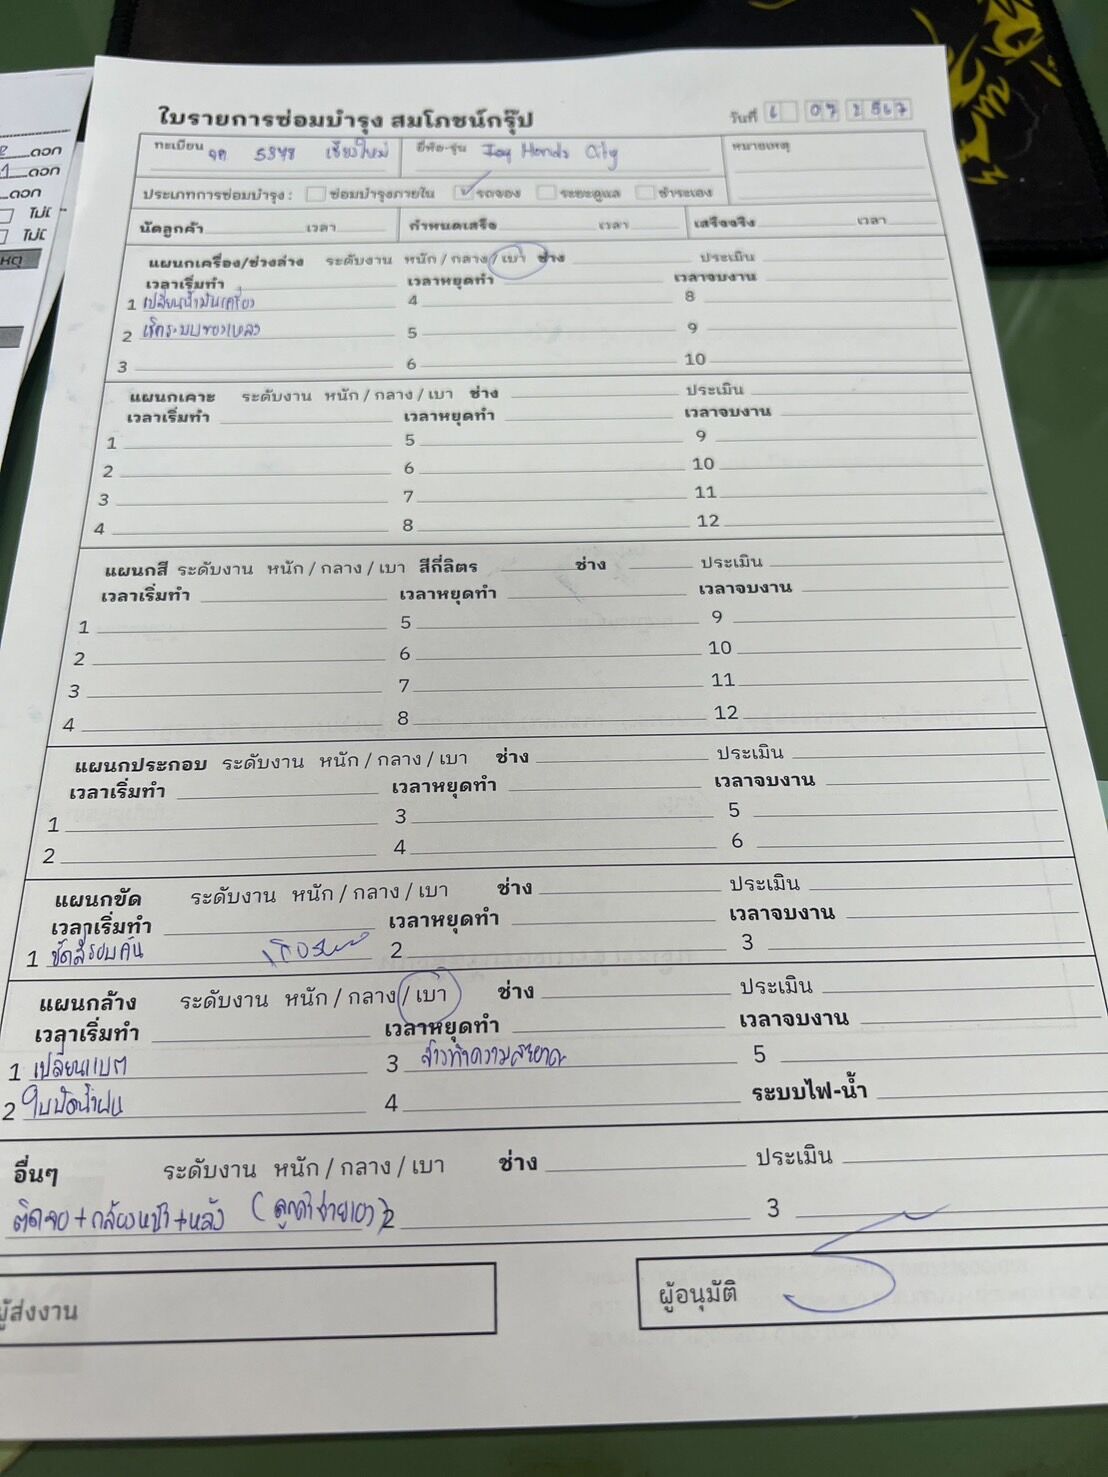 ดอก
1 ดอก
ดอก
ไม่
ไม่
หตุ
ใบรายการซ่อมบำรุง สมโภชน์กรุ๊ป
วันที่ 6 07 2567
ทะเบียน จด 5348 เชียงใหม่ ยี่ห้อ-รุ่น Honda City หมายเหตุ
ประเภทการซ่อมบำรุง : ซ่อมบำรุงภายใน ✓ รถจอง ระยะดูแล ชำระเอง
นัดลูกค้า เวลา กำหนดเสร็จ เวลา เสร็จจริง เวลา
แผนกเครื่อง/ช่วงล่าง ระดับงาน หนัก / กลาง / เบา ช่าง ประเมิน
เวลาเริ่มทำ เวลาหยุดทำ เวลาจบงาน
1 เปลี่ยนน้ำมันเครื่อง 4 8
2 เช็คระบบของเหลว 5 9
3 6 10
แผนกเคาะ ระดับงาน หนัก / กลาง / เบา ช่าง ประเมิน
เวลาเริ่มทำ เวลาหยุดทำ เวลาจบงาน
1 5 9
2 6 10
3 7 11
4 8 12
แผนกสี ระดับงาน หนัก / กลาง / เบา สีกี่ลิตร ช่าง ประเมิน
เวลาเริ่มทำ เวลาหยุดทำ เวลาจบงาน
1 5 9
2 6 10
3 7 11
4 8 12
แผนกประกอบ ระดับงาน หนัก / กลาง / เบา ช่าง ประเมิน
เวลาเริ่มทำ เวลาหยุดทำ เวลาจบงาน
1 3 5
2 4 6
แผนกขัด ระดับงาน หนัก / กลาง / เบา ช่าง ประเมิน
เวลาเริ่มทำ เวลาหยุดทำ เวลาจบงาน
1 ขัดสีรอบคัน 2 3
แผนกล้าง ระดับงาน หนัก / กลาง / เบา ช่าง ประเมิน
เวลาเริ่มทำ เวลาหยุดทำ เวลาจบงาน
1 เปลี่ยนแบต 3 ล้างทำความสะอาด 5
2 ใบปัดน้ำฝน 4 ระบบไฟ-น้ำ
อื่นๆ ระดับงาน หนัก / กลาง / เบา ช่าง ประเมิน
ติดจอ + กล้องหน้า + หลัง (ลูกค้าจ่ายเอง) 2 3
ผู้ส่งงาน ผู้อนุมัติ